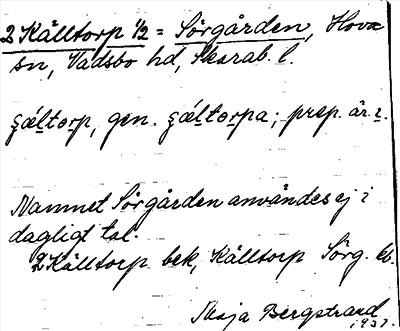 2 Källtorp 1/2 = Sörgården, Hova
sn, Vadsbo hd, Skarab. l.
ʂǽltorp, gen. ʂǽltorpa; prep. är i.
Namnet Sörgården användes ej i
dagligt tal.
2 Källtorp. bek, Källtorp Sörg. Eb.
Maja Bergstrand
1937.